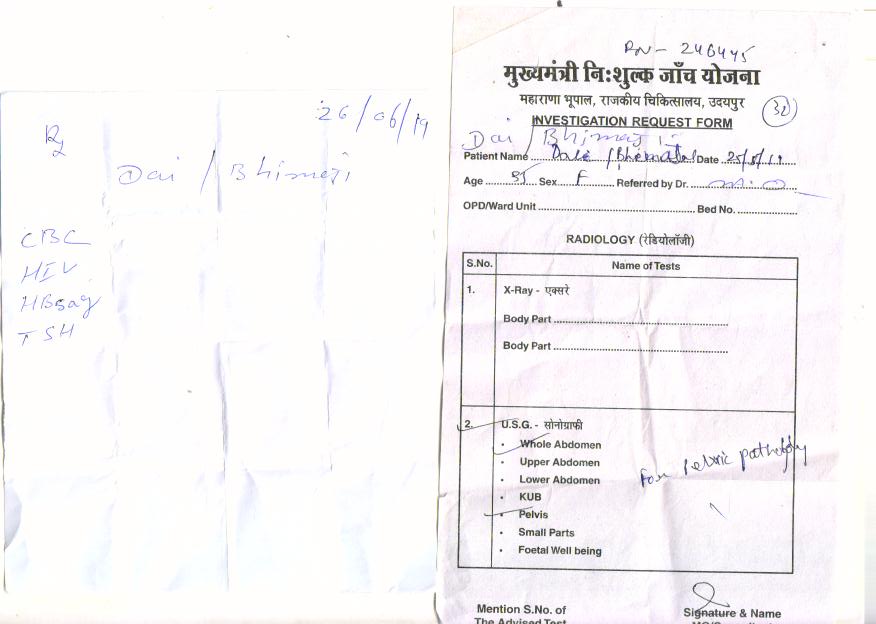 26/06/19
Rx
Dai / Bhimaji
CBC
HIV
HBsag
TSH
RN- 246445
मुख्यमंत्री नि:शुल्क जाँच योजना
महाराणा भूपाल, राजकीय चिकित्सालय, उदयपुर
INVESTIGATION REQUEST FORM
Dai / Bhimaji
Patient Name / Date
Age Sex F Referred by Dr. M.O
OPD/Ward Unit Bed No.
RADIOLOGY (रेडियोलॉजी)
S.No. Name of Tests
1. X-Ray - एक्सरे
Body Part
Body Part
2. U.S.G. - सोनोग्राफी
• Whole Abdomen
• Upper Abdomen
• Lower Abdomen
For Pelvic pathology
• KUB
• Pelvis
• Small Parts
• Foetal Well being
Mention S.No. of Signature & Name
The Advised Test